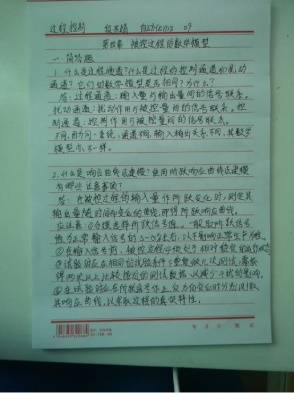 过程控制 自动化1113 09
第四章 被控过程的数学模型
一.简答题
1.什么是过程通道?什么是过程的控制通道和扰动
通道?它们的数学模型是否相同?为什么?
答:过程通道:输入量与输出量间的信号联系。
扰动通道:扰动作用与被控量间的信号联系。控
制通道:控制作用与被控量间的信号联系。
不同,即为一系统,通道不同,输入输出关系不同,其数学
模型亦不一样。
2.什么是响应曲线法建模?使用阶跃响应曲线法建模
有哪些注意事项?
答:在被控过程的输入量作阶跃变化时,测定其
输出量随时间而变化的曲线,即得阶跃响应曲线。
应注意:①合理选择阶跃信号值。一般取阶跃信号
值为正常输入信号的5-15%左右,以不影响正常生产为准。
②在输入信号前,被控过程必须处于相对稳定的工作状态
③试验时应在相同的试验条件下重复做几次测试,需获
得两次以上比较接近的测试数据,以减少干扰的影响。
④在试验时应在阶跃信号作正、反方向变化时分别测取
其响应曲线,以求取过程的真实特性。